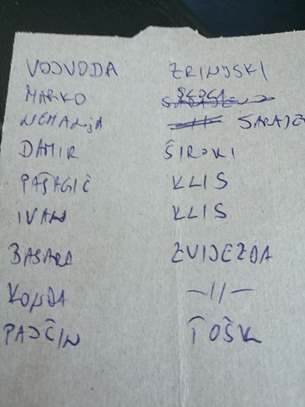 VOJVODA ZRINJSKI
MARKO SLOGA
NEMANJA SARAJE
DAMIR ŠIROKI
PAŠAGIĆ KLIS
IVAN KLIS
BASARA ZVIJEZDA
KONDA —11—
PAJČIN TOŠK